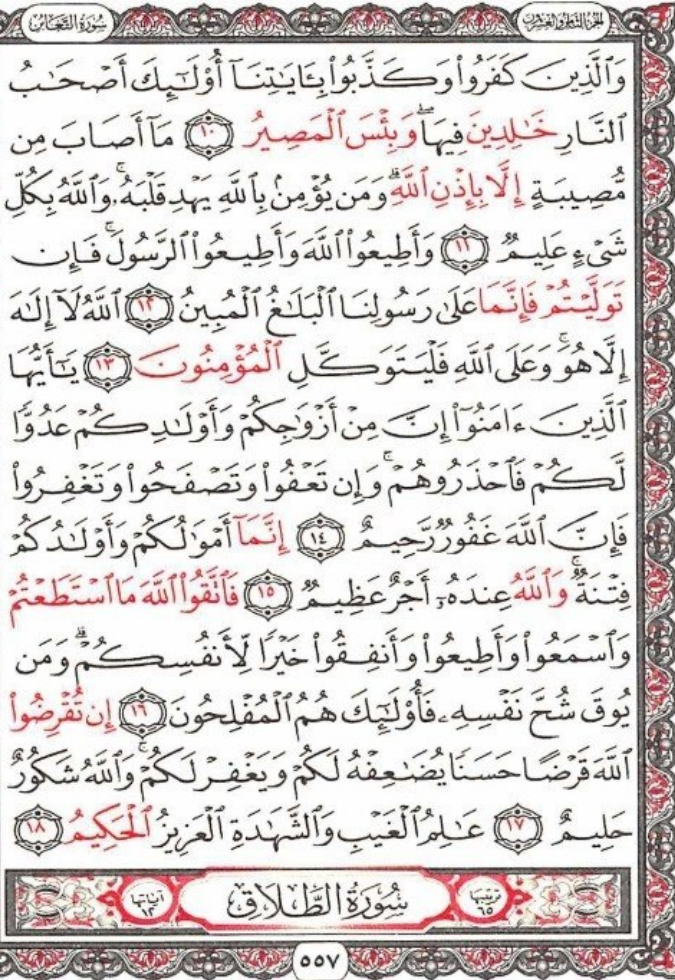 الجزء الثامن والعشرون
سورة التغابن
وَٱلَّذِينَ كَفَرُوا۟ وَكَذَّبُوا۟ بِـَٔايَـٰتِنَآ أُو۟لَـٰٓئِكَ أَصْحَـٰبُ
ٱلنَّارِ خَـٰلِدِينَ فِيهَا ۖ وَبِئْسَ ٱلْمَصِيرُ ١٠ مَآ أَصَابَ مِن
مُّصِيبَةٍ إِلَّا بِإِذْنِ ٱللَّهِ ۗ وَمَن يُؤْمِنۢ بِٱللَّهِ يَهْدِ قَلْبَهُۥ ۚ وَٱللَّهُ بِكُلِّ
شَىْءٍ عَلِيمٌ ١١ وَأَطِيعُوا۟ ٱللَّهَ وَأَطِيعُوا۟ ٱلرَّسُولَ ۚ فَإِن
تَوَلَّيْتُمْ فَإِنَّمَا عَلَىٰ رَسُولِنَا ٱلْبَلَـٰغُ ٱلْمُبِينُ ١٢ ٱللَّهُ لَآ إِلَـٰهَ
إِلَّا هُوَ ۚ وَعَلَى ٱللَّهِ فَلْيَتَوَكَّلِ ٱلْمُؤْمِنُونَ ١٣ يَـٰٓأَيُّهَا
ٱلَّذِينَ ءَامَنُوٓا۟ إِنَّ مِنْ أَزْوَٰجِكُمْ وَأَوْلَـٰدِكُمْ عَدُوًّا
لَّكُمْ فَٱحْذَرُوهُمْ ۚ وَإِن تَعْفُوا۟ وَتَصْفَحُوا۟ وَتَغْفِرُوا۟
فَإِنَّ ٱللَّهَ غَفُورٌ رَّحِيمٌ ١٤ إِنَّمَآ أَمْوَٰلُكُمْ وَأَوْلَـٰدُكُمْ
فِتْنَةٌ ۚ وَٱللَّهُ عِندَهُۥٓ أَجْرٌ عَظِيمٌ ١٥ فَٱتَّقُوا۟ ٱللَّهَ مَا ٱسْتَطَعْتُمْ
وَٱسْمَعُوا۟ وَأَطِيعُوا۟ وَأَنفِقُوا۟ خَيْرًا لِّأَنفُسِكُمْ ۗ وَمَن
يُوقَ شُحَّ نَفْسِهِۦ فَأُو۟لَـٰٓئِكَ هُمُ ٱلْمُفْلِحُونَ ١٦ إِن تُقْرِضُوا۟
ٱللَّهَ قَرْضًا حَسَنًا يُضَـٰعِفْهُ لَكُمْ وَيَغْفِرْ لَكُمْ ۚ وَٱللَّهُ شَكُورٌ
حَلِيمٌ ١٧ عَـٰلِمُ ٱلْغَيْبِ وَٱلشَّهَـٰدَةِ ٱلْعَزِيزُ ٱلْحَكِيمُ ١٨
ترتيبها ٦٥
سُورَةُ الطَّلَاق
آياتها ١٢
٥٥٧